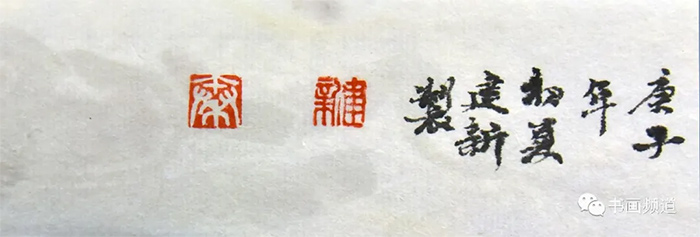 庚子
年
初夏
建新
製
建新
书画频道